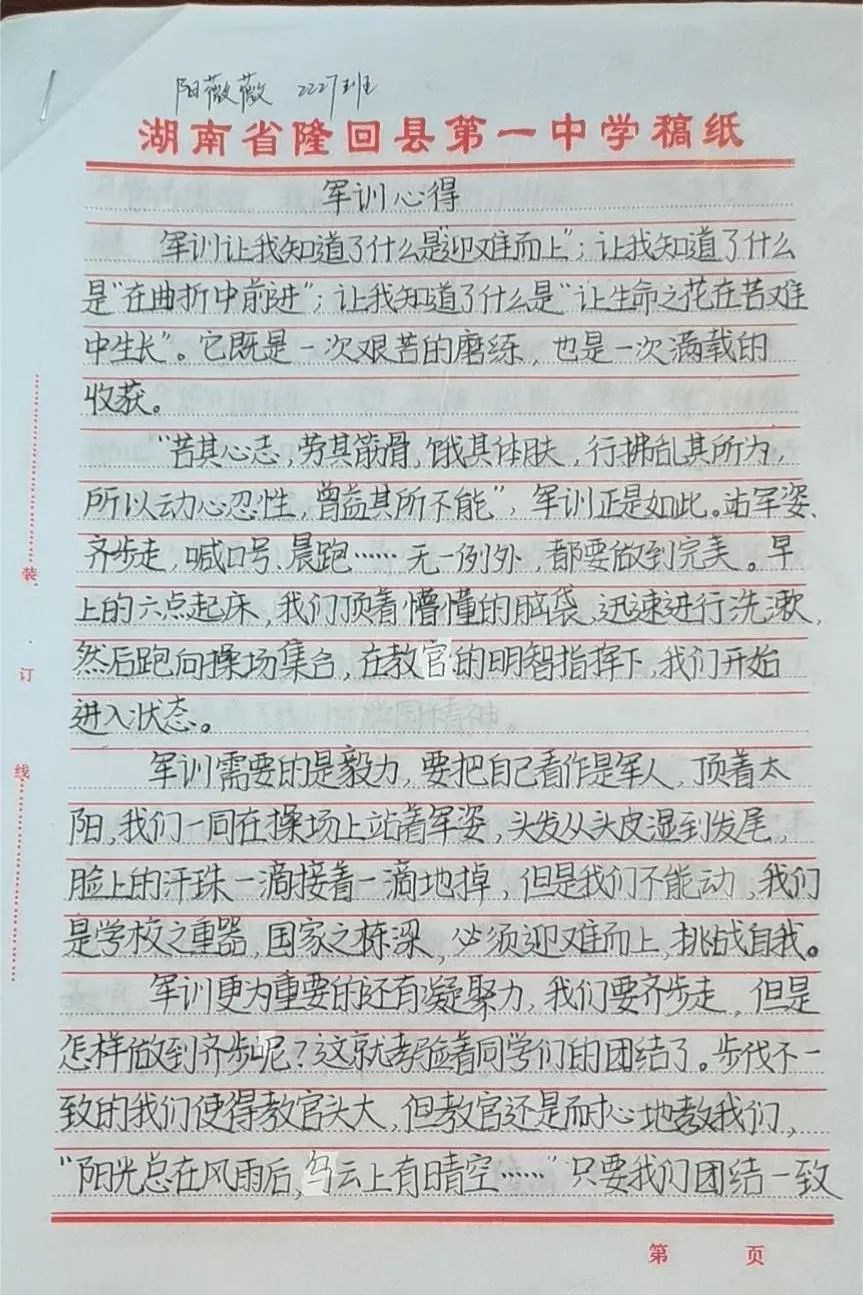 阳薇薇 2227班
湖南省隆回县第一中学稿纸
军训心得
军训让我知道了什么是"迎难而上"；让我知道了什么
是"在曲折中前进"；让我知道了什么是"让生命之花在苦难
中生长"。它既是一次艰苦的磨练，也是一次满载的
收获。
"苦其心志，劳其筋骨，饿其体肤，行拂乱其所为，
所以动心忍性，曾益其所不能"，军训正是如此。站军姿、
齐步走，喊口号、晨跑……无一例外，都要做到完美。早
上的六点起床，我们顶着懵懂的脑袋，迅速进行洗漱，
然后跑向操场集合，在教官的明智指挥下，我们开始
进入状态。
军训需要的是毅力，要把自己看作是军人，顶着太
阳，我们一同在操场上站着军姿，头发从头皮湿到发尾，
脸上的汗珠一滴接着一滴地掉，但是我们不能动，我们
是学校之重器，国家之栋梁，必须迎难而上，挑战自我。
军训更为重要的还有凝聚力，我们要齐步走，但是
怎样做到齐步呢？这就考验着同学们的团结了。步伐不一
致的我们使得教官头大，但教官还是耐心地教我们，
"阳光总在风雨后，乌云上有晴空……"只要我们团结一致
装
订
线
第 页